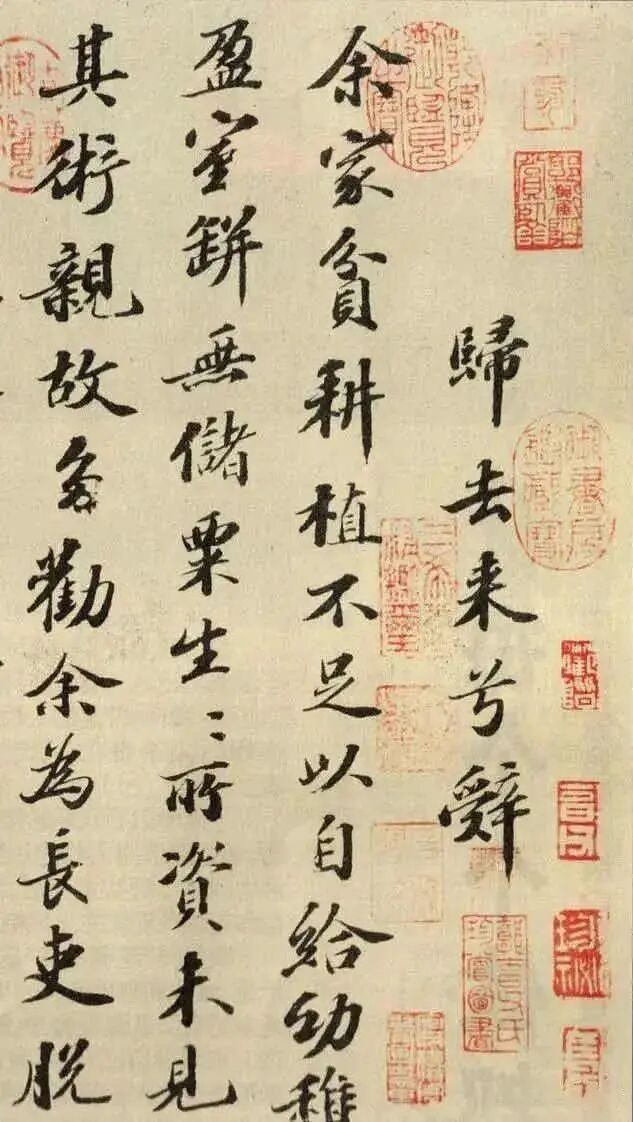 歸去来兮辭
余家貧耕植不足以自給幼稚
盈室缾無儲粟生〻所資未見
其術親故多勸余為長吏脱
乾隆御覽之寶